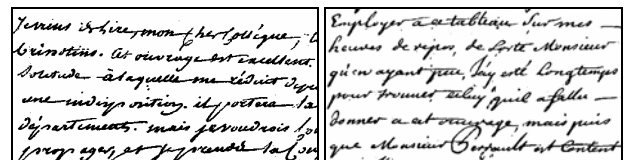 Je viens de lire, mon cher Collègue,
Crétins. Cet ouvrage est excellent.
Solitude à laquelle me réduit depu
une indisposition. il portera la
départements. mais je voudrois
propager, et je prends la
Employer a ce tableau Sur mes
heures de repos, de Sorte Monsieur
qu'en ayant peu, J'ay esté Longtemps
pour trouver celuy qu'il a fallu
donner a cet ouvrage, mais puis
que Monsieur Perrault est Content